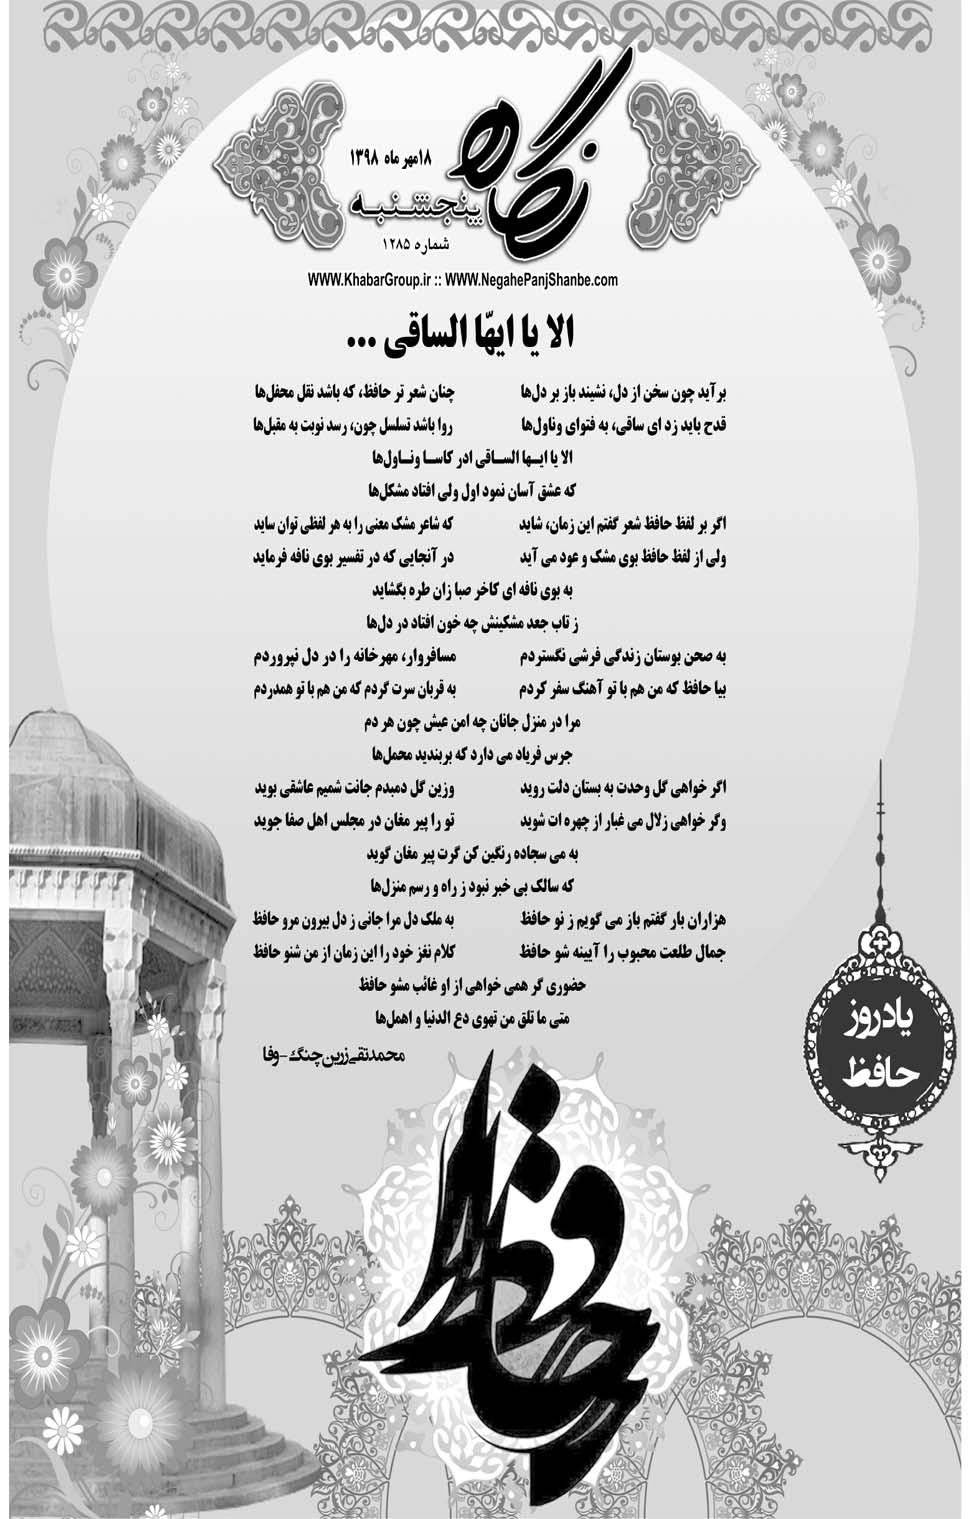 نگاه
۱۸مهر ماه ۱۳۹۸
پنجشنبه
شماره ۱۲۸۵
WWW.KhabarGroup.ir :: WWW.NegahePanjShanbe.com
الا یا ایهّا الساقی ...
برآید چون سخن از دل، نشیند باز بر دل‌ها چنان شعر تر حافظ، که باشد نقل محفل‌ها
قدح باید زد ای ساقی، به فتوای وناول‌ها روا باشد تسلسل چون، رسد نوبت به مقبل‌ها
الا یا ایـها الســاقی ادر کاســا ونـاول‌ها
که عشق آسان نمود اول ولی افتاد مشکل‌ها
اگر بر لفظ حافظ شعر گفتم این زمان، شاید که شاعر مشک معنی را به هر لفظی توان ساید
ولی از لفظ حافظ بوی مشک و عود می آید در آنجایی که در تفسیر بوی نافه فرماید
به بوی نافه ای کاخر صبا زان طره بگشاید
ز تاب جعد مشکینش چه خون افتاد در دل‌ها
به صحن بوستان زندگی فرشی نگستردم مسافروار، مهرخانه را در دل نپروردم
بیا حافظ که من هم با تو آهنگ سفر کردم به قربان سرت گردم که من هم با تو همدردم
مرا در منزل جانان چه امن عیش چون هر دم
جرس فریاد می دارد که بربندید محمل‌ها
اگر خواهی گل وحدت به بستان دلت روید وزین گل دمبدم جانت شمیم عاشقی بوید
وگر خواهی زلال می غبار از چهره ات شوید تو را پیر مغان در مجلس اهل صفا جوید
به می سجاده رنگین کن گرت پیر مغان گوید
که سالک بی خبر نبود ز راه و رسم منزل‌ها
هزاران بار گفتم باز می گویم ز نو حافظ به ملک دل مرا جانی ز دل بیرون مرو حافظ
جمال طلعت محبوب را آیینه شو حافظ کلام نغز خود را این زمان از من شنو حافظ
حضوری گر همی خواهی از او غائب مشو حافظ
متی ما تلق من تهوی دع الدنیا و اهمل‌ها
محمدتقی زرین چنگ - وفا
یادروز
حافظ
حافظ